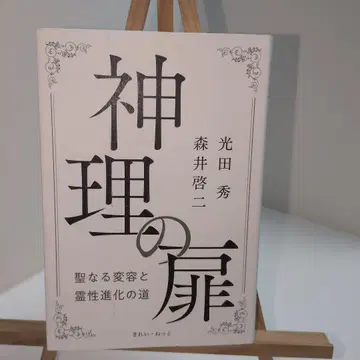 神理の扉
光田 秀
森井啓二
聖なる変容と
霊性進化の道
きれい・ねっと